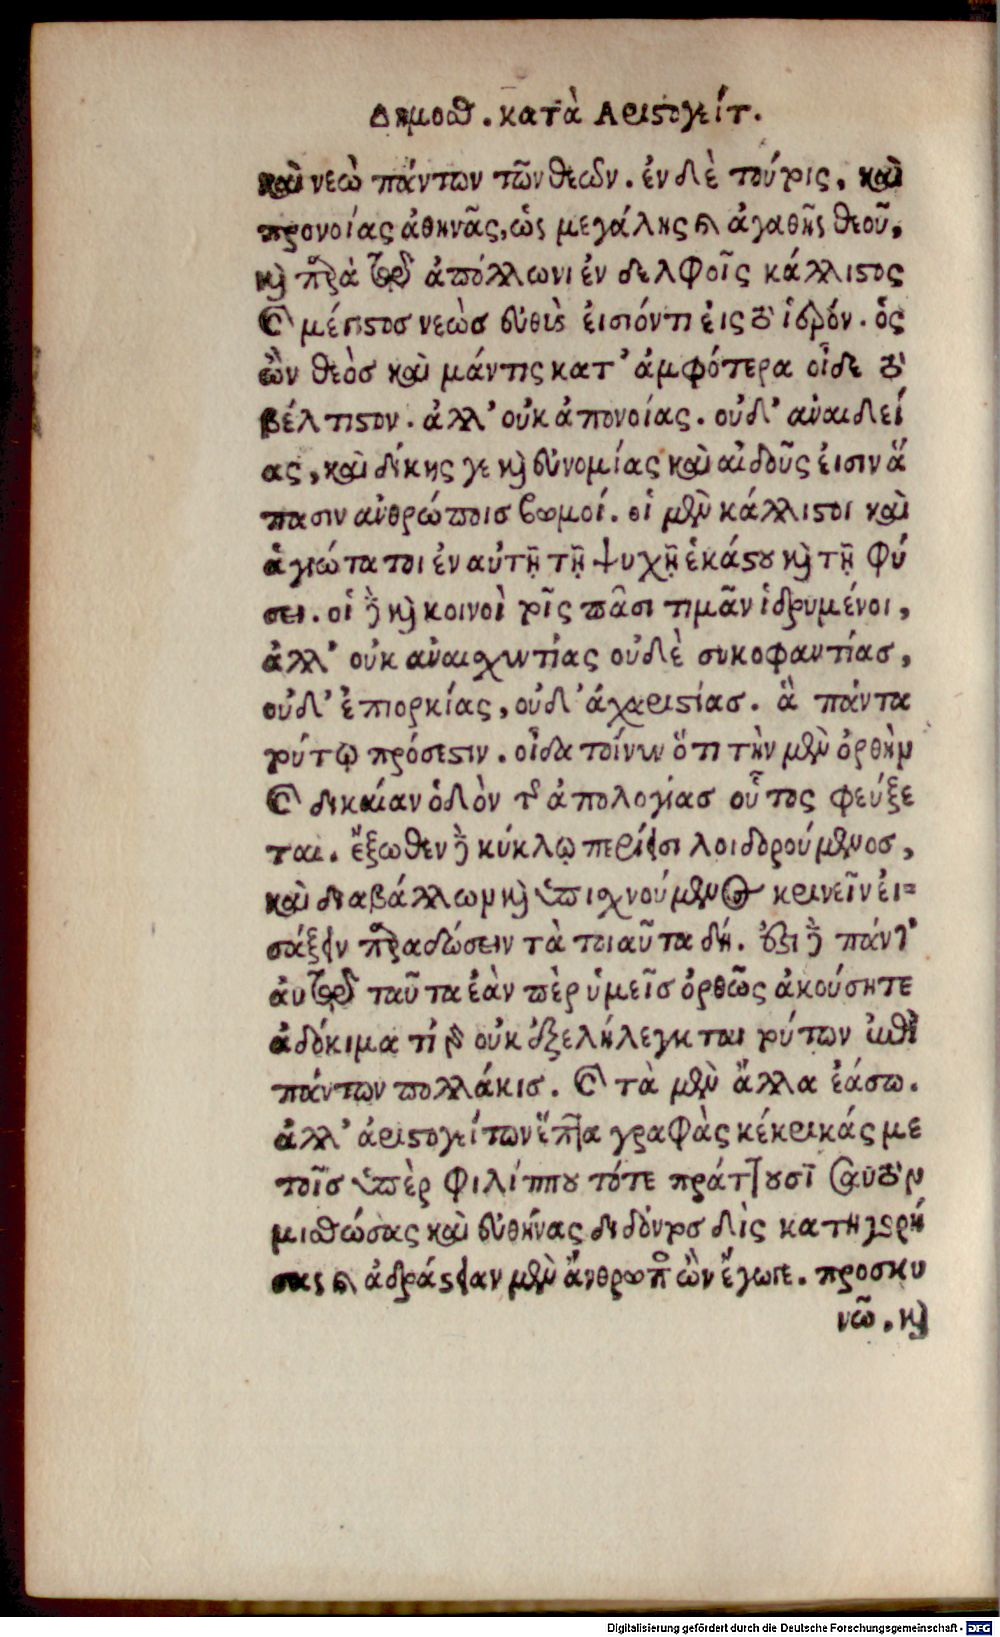 Δημοσθ. κατὰ Αριστογείτ.
καὶ νεὼ πάντων τῶν θεῶν. ἐν δὲ τούτοις, καὶ
προνοίας ἀθηνᾶς, ὡς μεγάλης καὶ ἀγαθῆς θεοῦ,
καὶ παρὰ τῷ ἀπόλλωνι ἐν δελφοῖς κάλλιστος
καὶ μέγιστοσ νεὼσ εὐθὺς εἰσιόντι εἰς τὸ ἱερόν. ὃς
ὢν θεὸσ καὶ μάντις κατ' ἀμφότερα οἶδε τὸ
βέλτιστον. ἀλλ' οὐκ ἀπονοίας. οὐδ' ἀναιδεί
ας, καὶ δίκης γε καὶ εὐνομίας καὶ αἰδοῦς εἰσιν ἅ
πασιν ἀνθρώποισ βωμοί. οἱ μὲν κάλλιστοι καὶ
ἁγιώτατοι ἐν αὐτῇ τῇ ψυχῇ ἑκάστου καὶ τῇ φύ
σει. οἱ δὲ καὶ κοινοὶ τοῖς πᾶσι τιμᾶν ἱδρυμένοι,
ἀλλ' οὐκ ἀναισχυντίας οὐδὲ συκοφαντίασ,
οὐδ' ἐπιορκίας, οὐδ' ἀχαριστίασ. ἃ πάντα
τούτῳ πρόσεστιν. οἶδα τοίνυν ὅτι τὴν μὲν ὀρθὴν
καὶ δικαίαν ὁδὸν τῆς ἀπολογίασ οὗτος φεύξε
ται. ἔξωθεν δὲ κύκλῳ περίεισι λοιδορούμενοσ,
καὶ διαβάλλων καὶ ὑπισχνούμενος κρινεῖν εἰ-
σάξειν παραδώσειν τὰ τοιαῦτα δή. ἔστι δὲ πάντ'
αυτῷ ταῦτα ἐὰν πὲρ ὑμεῖσ ὀρθῶς ἀκούσητε
ἀδόκιμα τί γὰρ οὐκ ἐξελήλεγκται τούτων ἐπὶ
πάντων πολλάκισ. καὶ τὰ μὲν ἄλλα ἐάσω.
ἀλλ' ἀριστογείτων ἕπτα γραφὰς κέκρικάς με
τοῖσ ὑπὲρ φιλίππου τότε πράττουσῒ σαυτὸν
μισθώσας καὶ εὐθύνας διδόντοσ δὶς κατηγορή
σας καὶ ἀδράστειαν μὲν ἄνθρωπος ὢν ἔγωγε. προσκυ
νῶ. καὶ
Digitalisierung gefördert durch die Deutsche Forschungsgemeinschaft - DFG